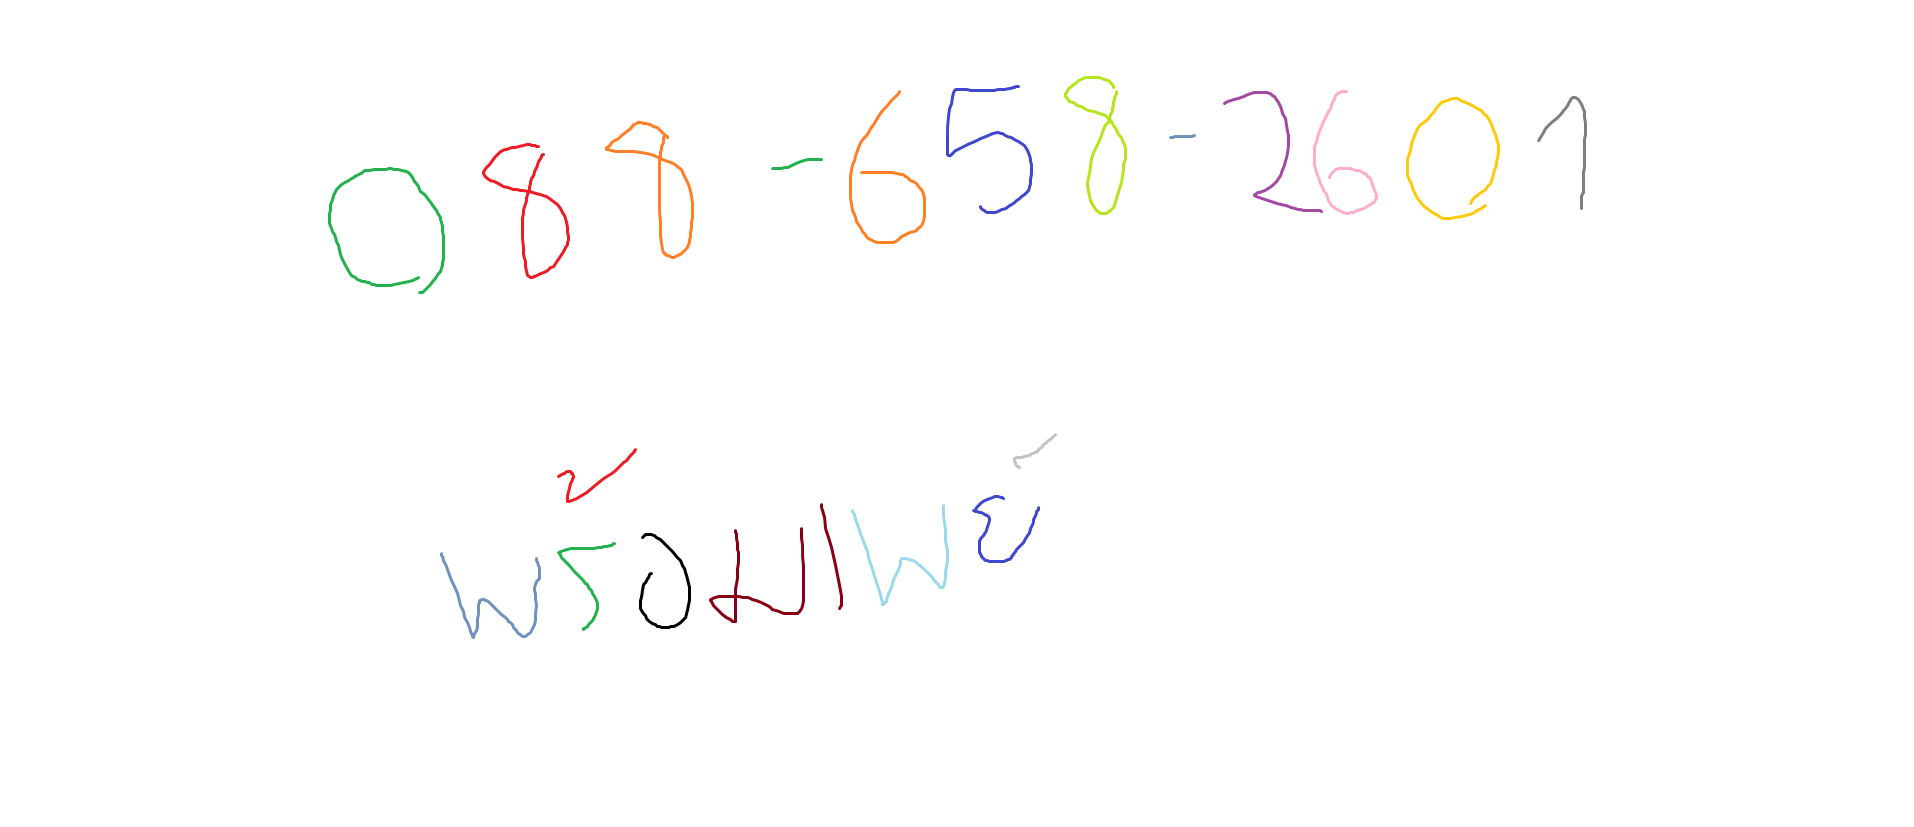 088-658-2601
พร้อมเพย์